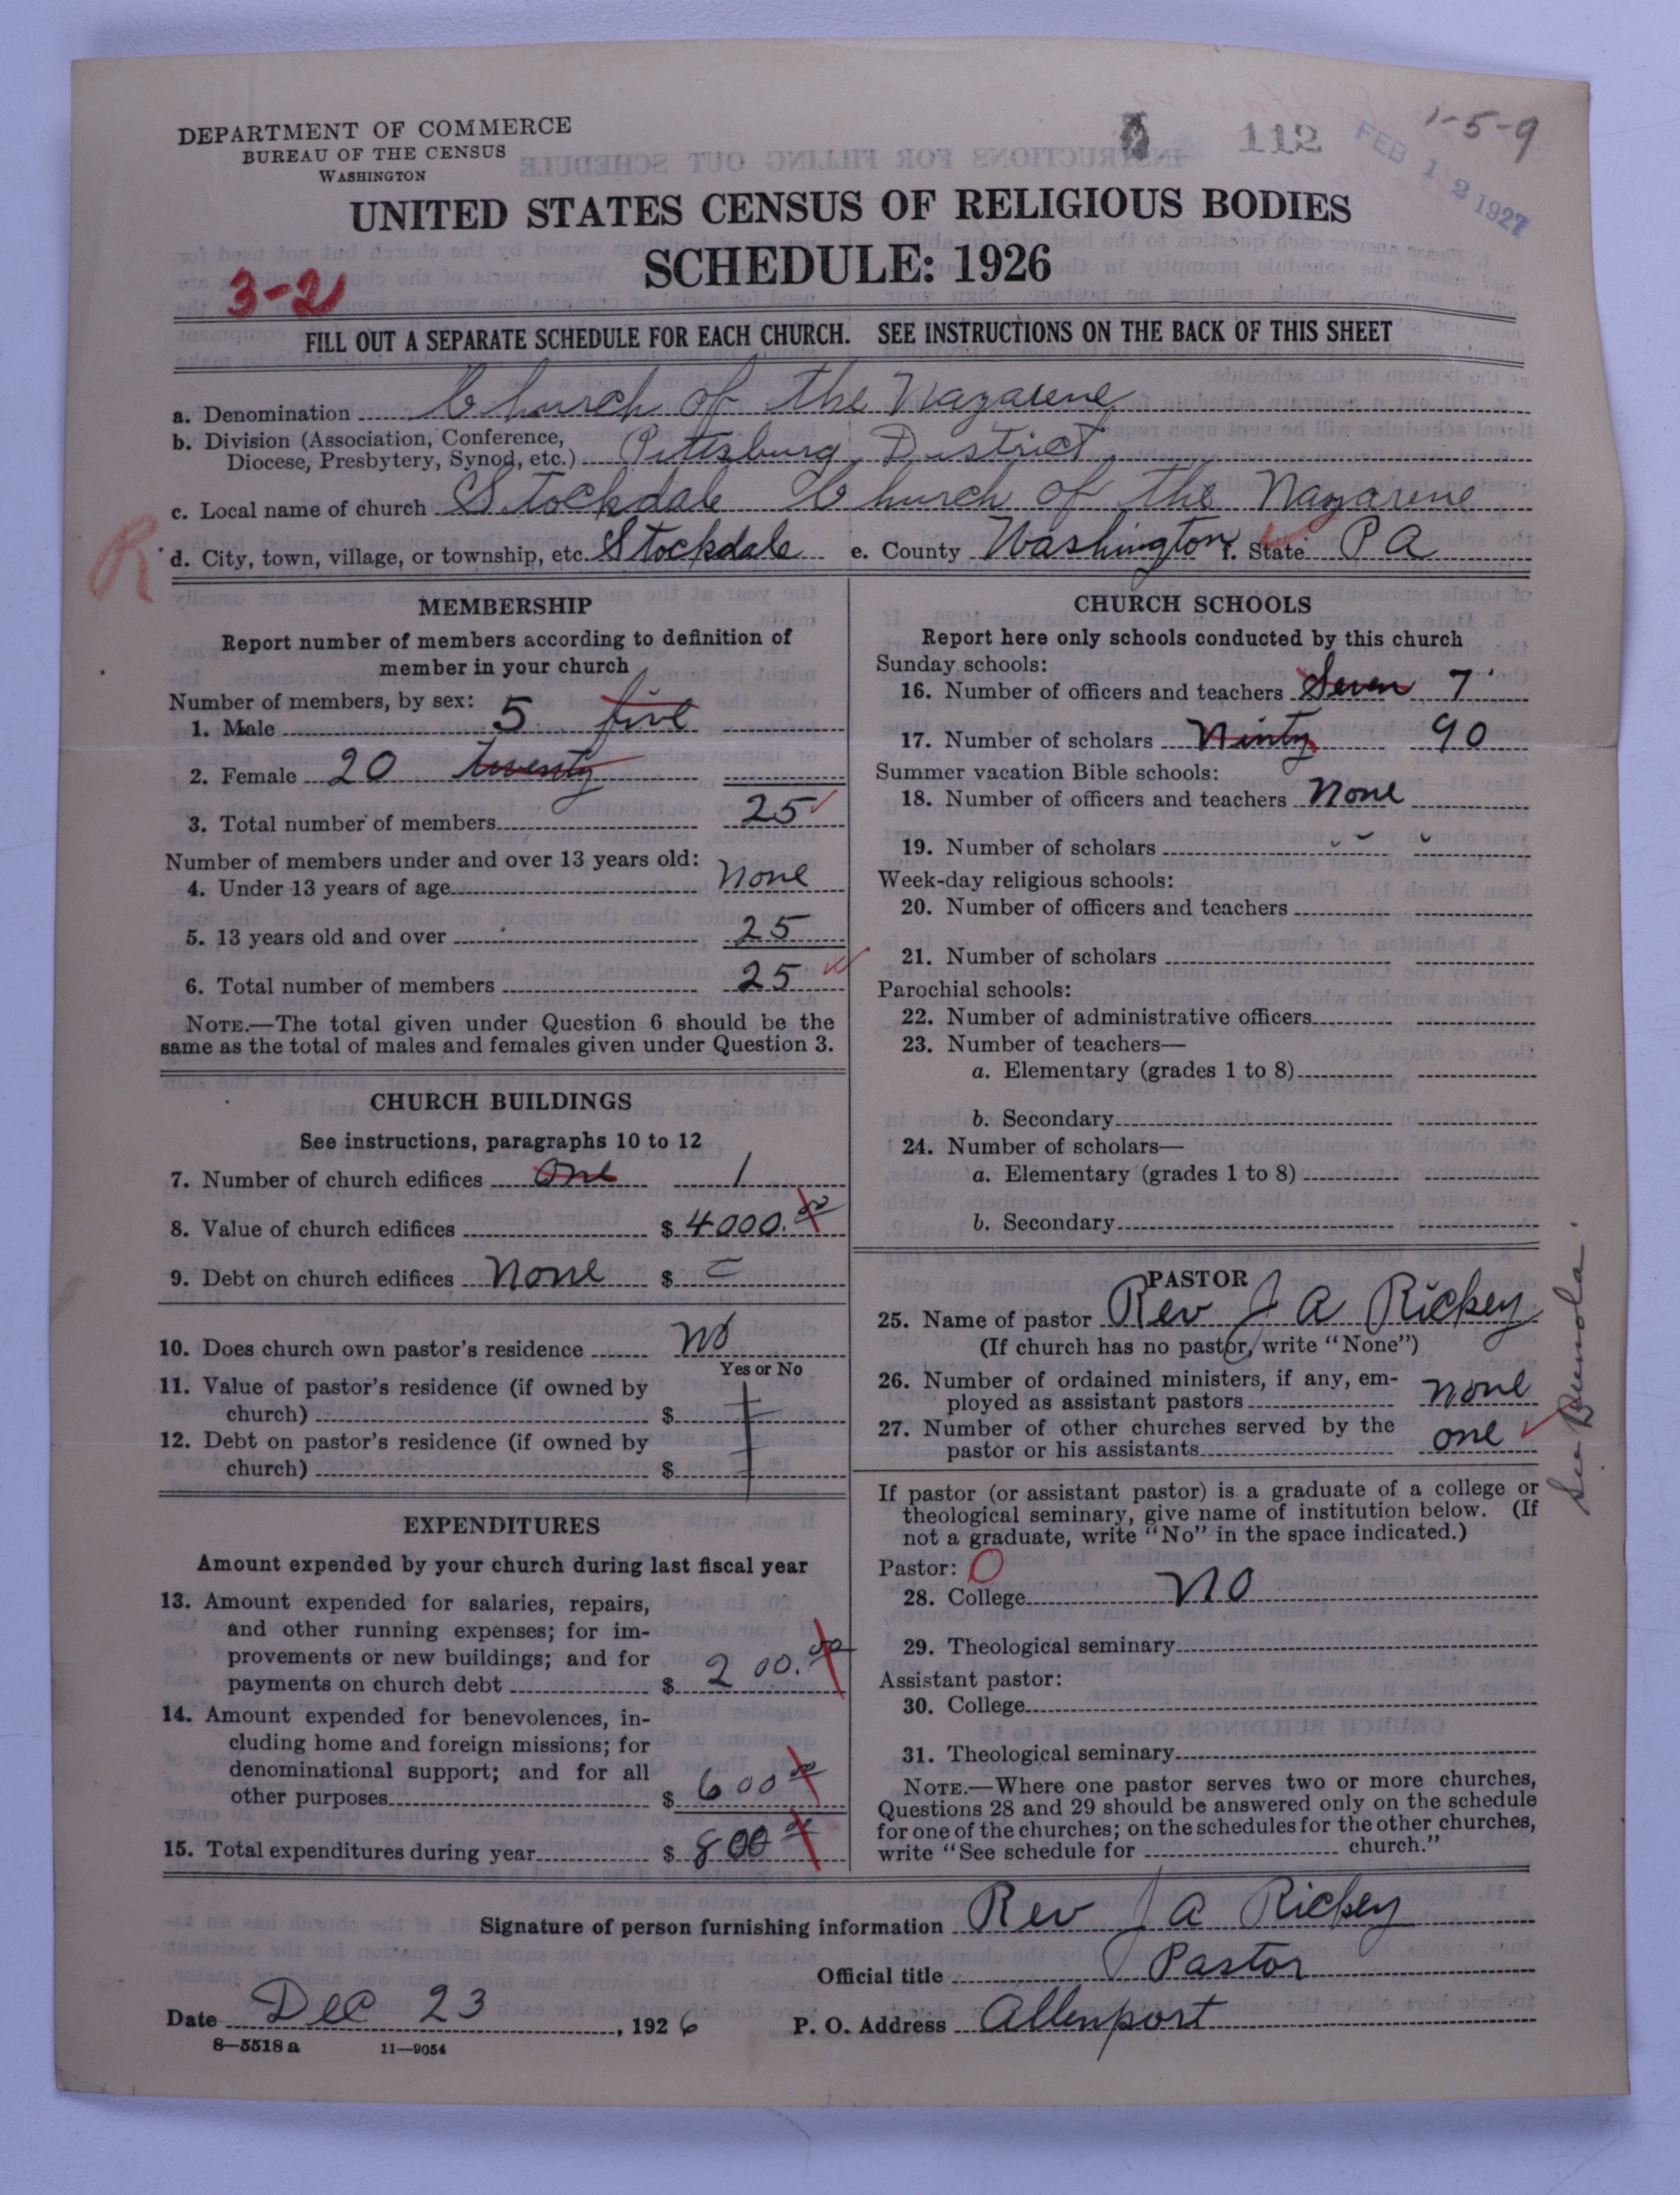 DEPARTMENT OF COMMERCE
BUREAU OF THE CENSUS
WASHINGTON
112
FEB 12 1927
1-5-9
UNITED STATES CENSUS OF RELIGIOUS BODIES
SCHEDULE: 1926
3-2
FILL OUT A SEPARATE SCHEDULE FOR EACH CHURCH. SEE INSTRUCTIONS ON THE BACK OF THIS SHEET
a. Denomination Church of the Nazarene
b. Division (Association, Conference,
Diocese, Presbytery, Synod, etc.) Pittsburg District
c. Local name of church Stockdale Church of the Nazarene
R
d. City, town, village, or township, etc. Stockdale e. County Washington f. State PA
MEMBERSHIP
Report number of members according to definition of
member in your church
Number of members, by sex:
1. Male 5 five
2. Female 20 twenty
3. Total number of members 25
Number of members under and over 13 years old:
4. Under 13 years of age none
5. 13 years old and over 25
6. Total number of members 25
NOTE.—The total given under Question 6 should be the
same as the total of males and females given under Question 3.
CHURCH BUILDINGS
See instructions, paragraphs 10 to 12
7. Number of church edifices one 1
8. Value of church edifices $ 4000.00
9. Debt on church edifices none $
10. Does church own pastor's residence no
Yes or No
11. Value of pastor's residence (if owned by
church) $
12. Debt on pastor's residence (if owned by
church) $
EXPENDITURES
Amount expended by your church during last fiscal year
13. Amount expended for salaries, repairs,
and other running expenses; for im-
provements or new buildings; and for
payments on church debt $ 200.00
14. Amount expended for benevolences, in-
cluding home and foreign missions; for
denominational support; and for all
other purposes $ 600 00
15. Total expenditures during year $ 800 00
CHURCH SCHOOLS
Report here only schools conducted by this church
Sunday schools:
16. Number of officers and teachers Seven 7
17. Number of scholars Ninty 90
Summer vacation Bible schools:
18. Number of officers and teachers none
19. Number of scholars
Week-day religious schools:
20. Number of officers and teachers
21. Number of scholars
Parochial schools:
22. Number of administrative officers
23. Number of teachers—
a. Elementary (grades 1 to 8)
b. Secondary
24. Number of scholars—
a. Elementary (grades 1 to 8)
b. Secondary
PASTOR
25. Name of pastor Rev J A Rickey
(If church has no pastor, write "None")
26. Number of ordained ministers, if any, em-
ployed as assistant pastors none
27. Number of other churches served by the
pastor or his assistants one
See Bunola.
If pastor (or assistant pastor) is a graduate of a college or
theological seminary, give name of institution below. (If
not a graduate, write "No" in the space indicated.)
Pastor: O
28. College no
29. Theological seminary
Assistant pastor:
30. College
31. Theological seminary
NOTE.—Where one pastor serves two or more churches,
Questions 28 and 29 should be answered only on the schedule
for one of the churches; on the schedules for the other churches,
write "See schedule for church."
Signature of person furnishing information Rev J A Rickey
Official title Pastor
Date Dec 23, 1926 P. O. Address Allenport
8—5518 a 11—9054